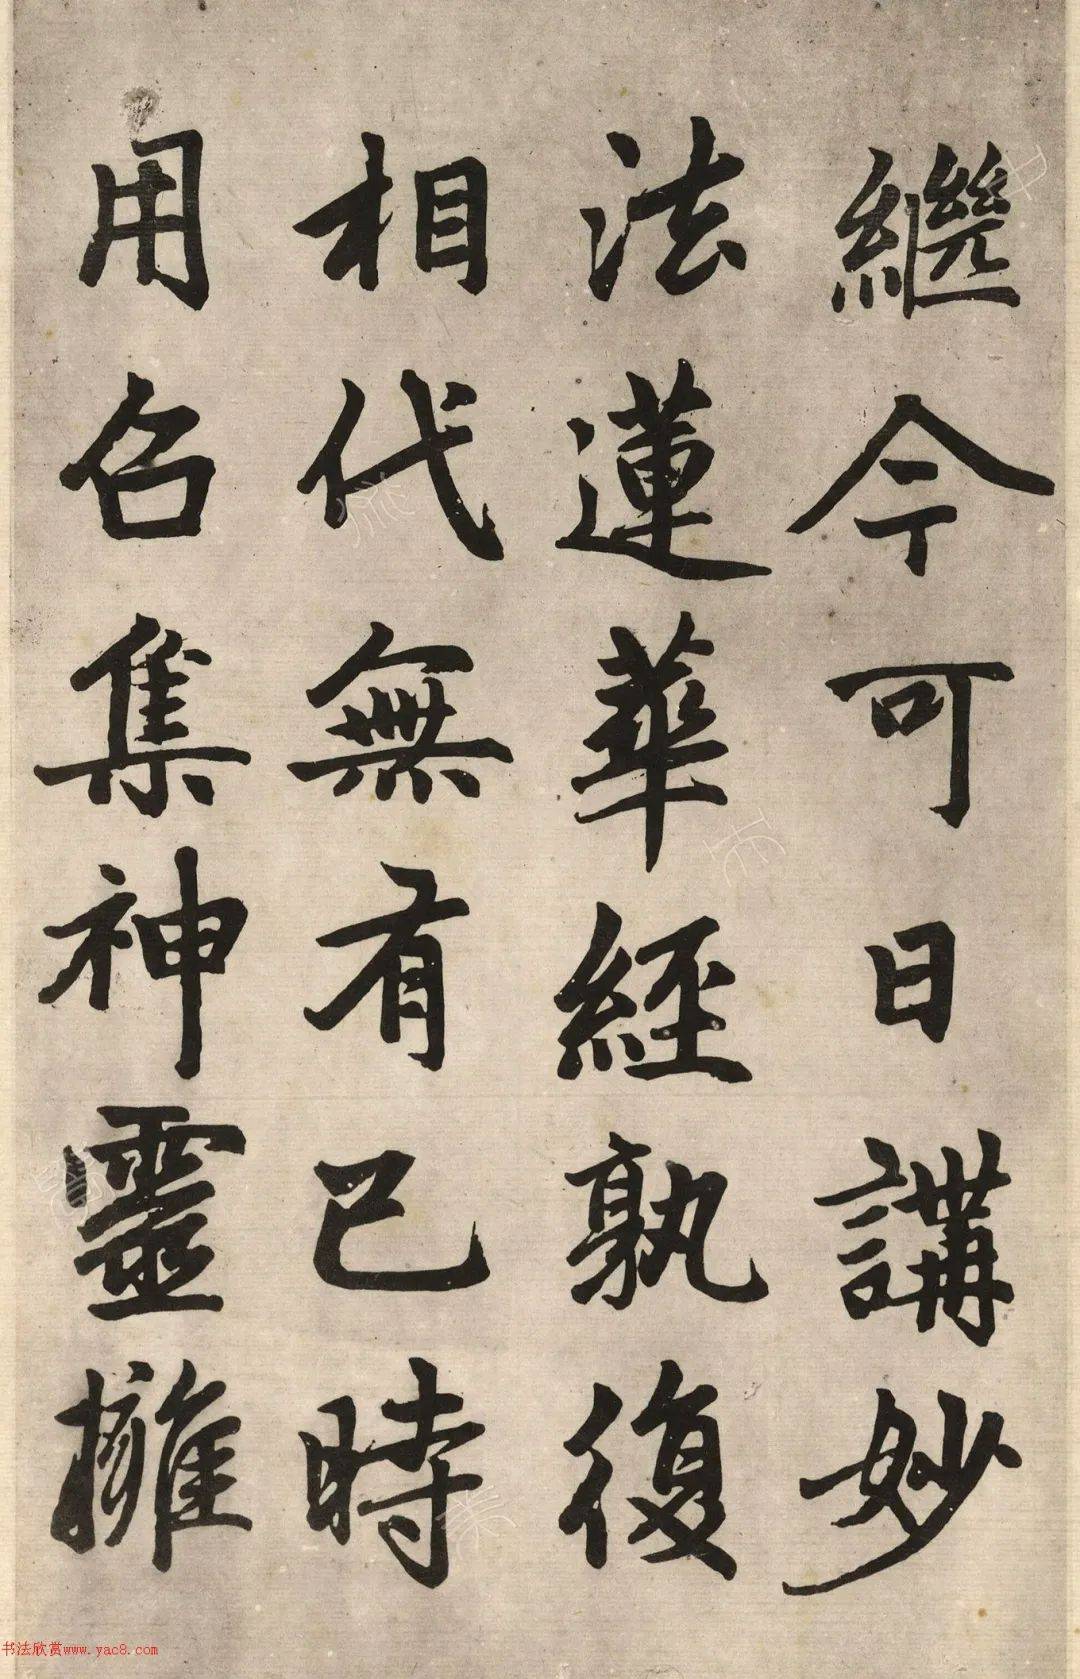 繼今可日講妙
法蓮華經孰復
相代無有已時
用召集神靈擁
书法欣赏www.yac8.com